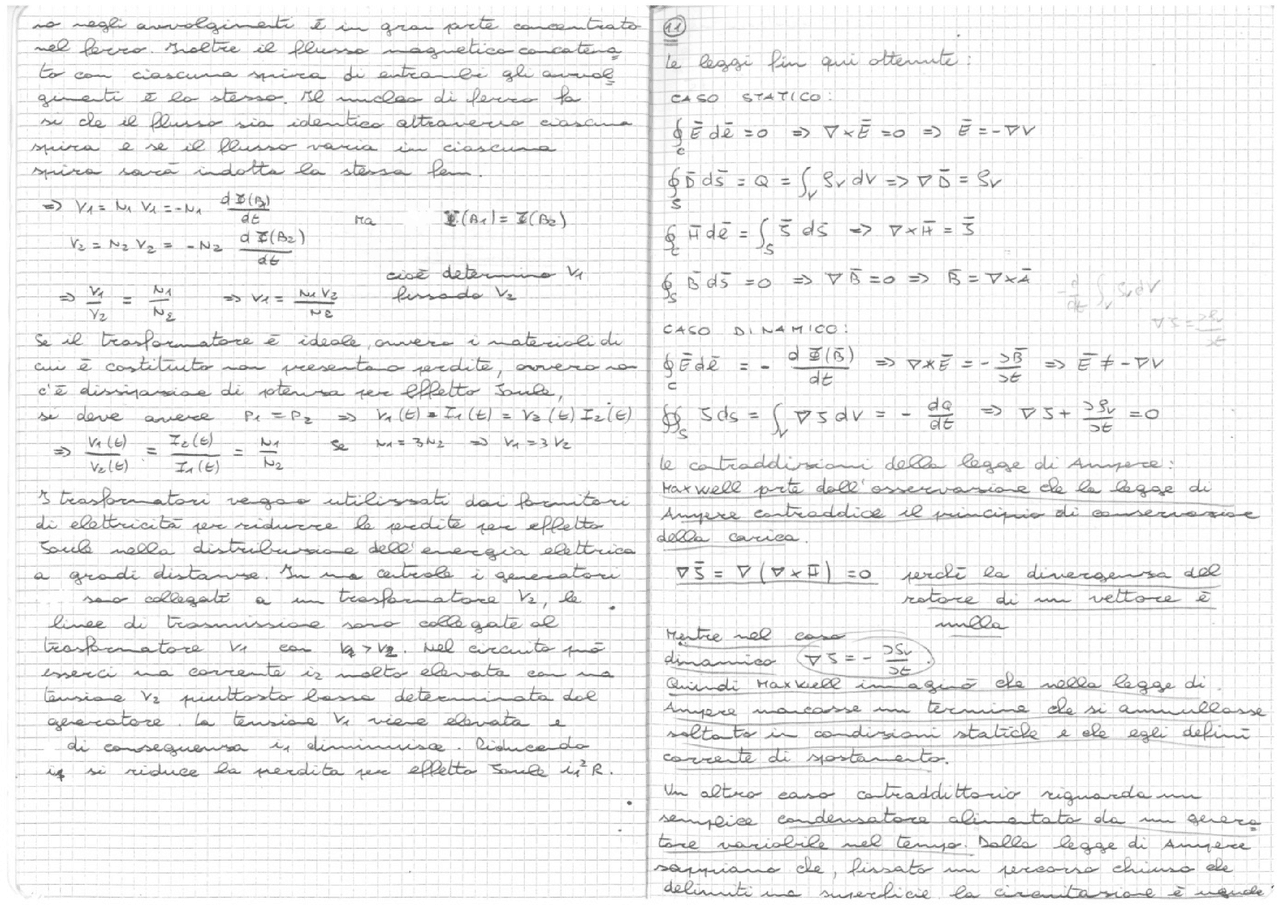 no negli avvolgimenti è in gran parte concentrato
nel ferro. Inoltre il flusso magnetico concatena
to con ciascuna spira di entrambi gli avvol
gimenti è lo stesso. Il nucleo di ferro fa
si che il flusso sia identico attraverso ciascuna
spira e se il flusso varia in ciascuna
spira sarà indotta la stessa fem.
=> V1 = N1 V1 = -N1 dΦ(B1)/dt Ma Φ(B1) = Φ(B2)
V2 = N2 V2 = -N2 dΦ(B2)/dt
cioè determino V1
=> V1/V2 = N1/N2 => V1 = N1 V2/N2 fissado V2
Se il trasformatore è ideale, ovvero i materiali di
cui è costituito non presentano perdite, ovvero no
c'è dissipazioe di potenza per effetto Joule,
se deve avere P1 = P2 => V1(t) I1(t) = V2(t) I2(t)
=> V1(t)/V2(t) = I2(t)/I1(t) = N1/N2 Se N1 = 3N2 => V1 = 3V2
I trasformatori vegoo utilizzati dai fornitori
di elettricità per ridurre le perdite per effetto
Joule nella distribuzioe dell'energia elettrica
a gradi distanze. In una cetrale i generatori
sono collegati a un trasformatore V2, le
linee di trasmissioe sono collegate al
trasformatore V1 con V1 > V2. Nel circuito può
esserci una corrente i2 molto elevata con una
tensioe V2 piuttosto bassa determinata dal
generatore. La tensioe V1 viene elevata e
di conseguenza i1 diminuisce. Riducendo
i1 si riduce la perdita per effetto Joule i1²R.
11
Le leggi fin qui ottenute:
CASO STATICO:
∮c E̅ dl̅ = 0 => ∇×E̅ = 0 => E̅ = -∇V
∮S D̅ ds̅ = Q = ∫V ρv dV => ∇D̅ = ρv
∮c H̅ dl̅ = ∫S J̅ ds̅ => ∇×H̅ = J̅
∮S B̅ ds̅ = 0 => ∇B̅ = 0 => B̅ = ∇×A̅
CASO DINAMICO:
∮c E̅ dl̅ = - dΦ(B̅)/dt => ∇×E̅ = - ∂B̅/∂t => E̅ ≠ -∇V
∯S J ds = ∫V ∇J dV = - dQ/dt => ∇J + ∂ρv/∂t = 0
Le cotraddizioni della legge di Ampere:
Maxwell parte dall'osservazioe che la legge di
Ampere contraddice il principio di conservazioe
della carica.
∇J̅ = ∇(∇×H̅) = 0 perchè la divergenza del
rotore di un vettore è
nulla
Metre nel caso
dinamico ∇J = - ∂ρv/∂t.
Quindi Maxwell immaginò che nella legge di
Ampere mancasse un termine che si annullasse
soltanto in condizioni statiche e che egli definì
corrente di spostamento.
Un altro caso cotraddittorio riguarda un
semplice condensatore alimentato da un genera
tore variabile nel tempo. Dalla legge di Ampere
sappiamo che, fissato un percorso chiuso che
delimiti una superficie la circuitazioe è uguale